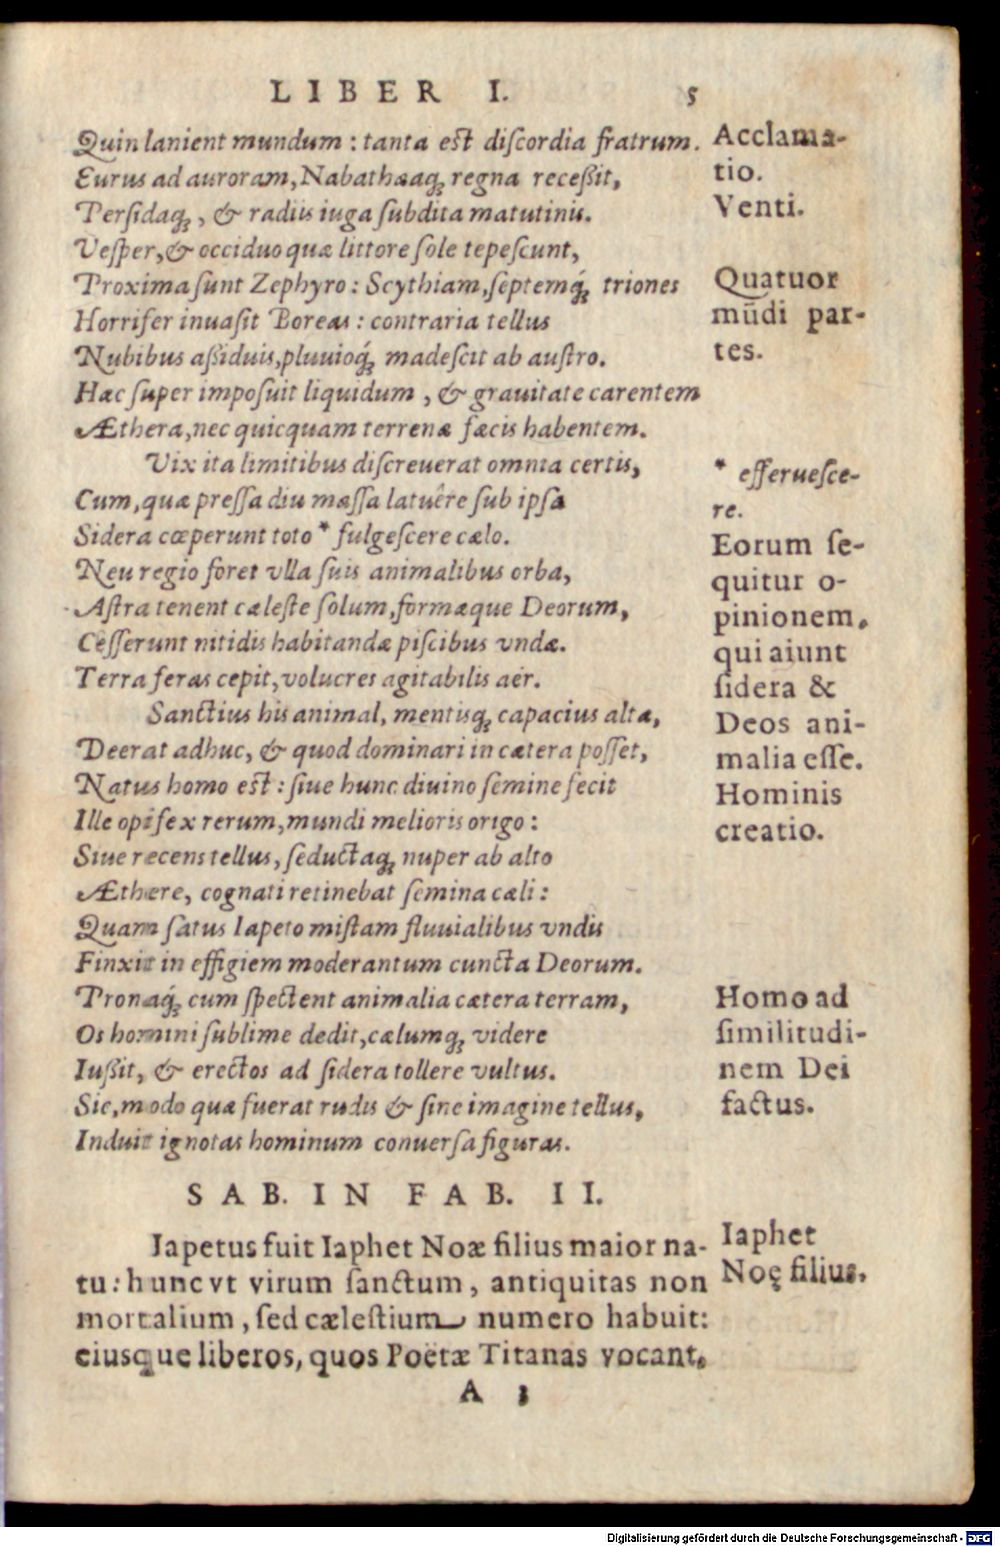 LIBER I. 5
Quin lanient mundum : tanta est diſcordia fratrum.
Eurus ad auroram, Nabathæaq; regna receßit,
Perſidaq;, & radiis iuga ſubdita matutinis.
Veſper, & occiduo quæ littore ſole tepeſcunt,
Proxima ſunt Zephyro : Scythiam, ſeptemq́; triones
Horrifer inuaſit Boreas : contraria tellus
Nubibus aßiduis, pluuioq́; madeſcit ab auſtro.
Hæc ſuper impoſuit liquidum, & grauitate carentem
Æthera, nec quicquam terrenæ fæcis habentem.
Vix ita limitibus diſcreuerat omnia certis,
Cum, quæ preſſa diu maſſa latuêre ſub ipſa
Sidera cœperunt toto * fulgeſcere cælo.
Neu regio foret vlla ſuis animalibus orba,
Aſtra tenent cæleſte ſolum, formæque Deorum,
Ceſſerunt nitidis habitandæ piſcibus vndæ.
Terra feras cepit, volucres agitabilis aër.
Sanctius his animal, mentisq; capacius altæ,
Deerat adhuc, & quod dominari in cætera poſſet,
Natus homo est : ſiue hunc diuino ſemine fecit
Ille opifex rerum, mundi melioris origo :
Siue recens tellus, ſeductaq; nuper ab alto
Æthere, cognati retinebat ſemina cæli :
Quam ſatus Iapeto miſtam fluuialibus vndis
Finxit in effigiem moderantum cuncta Deorum.
Pronaq́; cum ſpectent animalia cætera terram,
Os homini ſublime dedit, cælumq; videre
Iußit, & erectos ad ſidera tollere vultus.
Sic, modo quæ fuerat rudis & ſine imagine tellus,
Induit ignotas hominum conuerſa figuras.
Acclama-
tio.
Venti.
Quatuor
mūdi par-
tes.
* efferueſce-
re.
Eorum ſe-
quitur o-
pinionem,
qui aiunt
ſidera &
Deos ani-
malia eſſe.
Hominis
creatio.
Homo ad
ſimilitudi-
nem Dei
factus.
SAB. IN FAB. II.
Iapetus fuit Iaphet Noæ filius maior na-
tu : hunc vt virum ſanctum, antiquitas non
mortalium, ſed cæleſtium numero habuit:
eiusque liberos, quos Poëtæ Titanas vocant,
Iaphet
Noę filius.
A 3
Digitalisierung gefördert durch die Deutsche Forschungsgemeinschaft - DFG